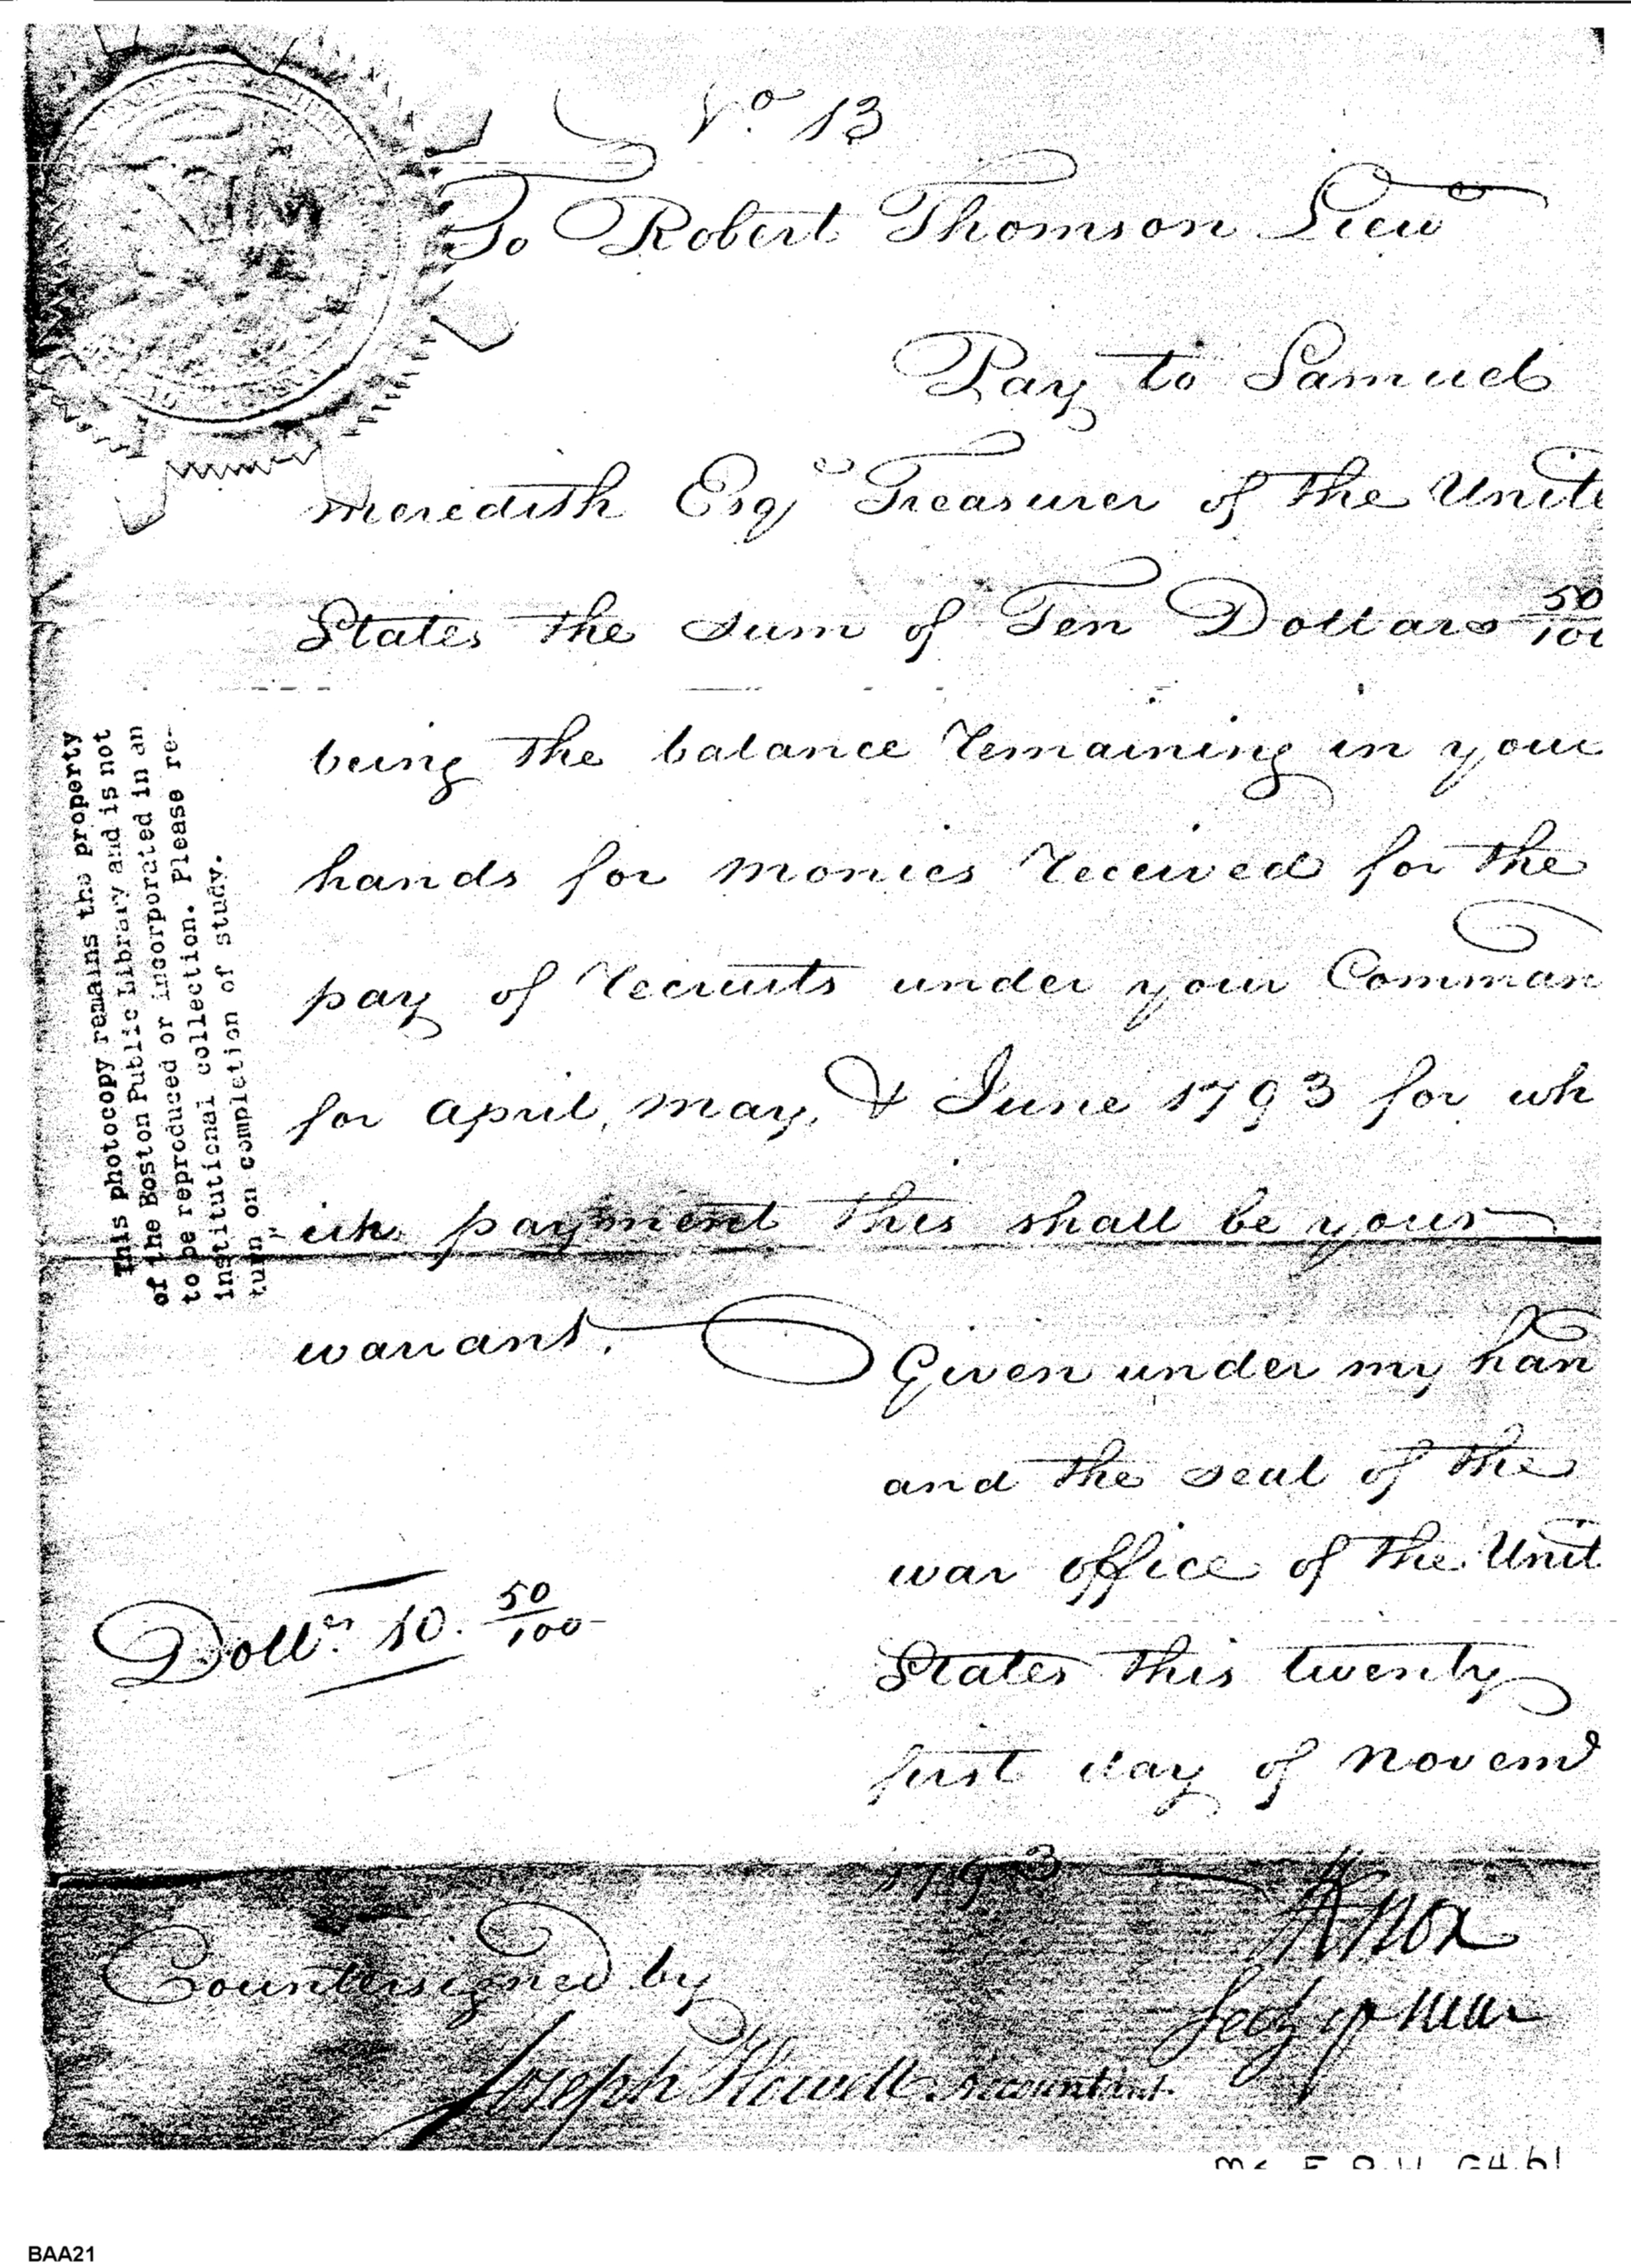 No. 13
To Robert Thomson Lieu
Pay to Samuel
Meredith Esqr Treasurer of the Unite
States the sum of Ten Dollars 50/100
being the balance remaining in your
hands for monies received for the
pay of recruits under your Comman
for april, may, & June 1793 for wh
ich payment this shall be your
warrant.
Given under my han
and the seal of the
war office of the Unit
States this twenty
first day of novem
1793
Dollrs. 10. 50/100
HKnox
Secy of War
Countersigned by
Joseph Howell Accountant.
This photocopy remains the property
of the Boston Public Library and is not
to be reproduced or incorporated in an
institutional collection. Please re-
turn on completion of study.
BAA21